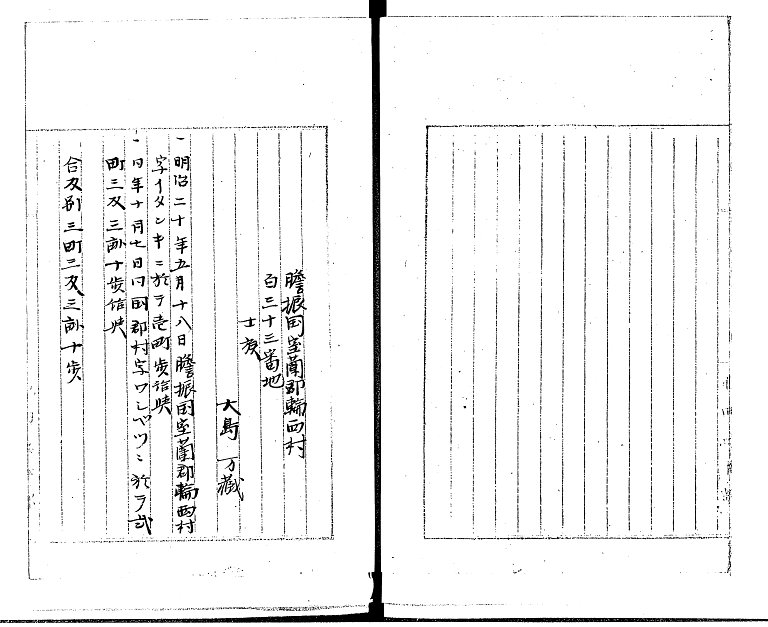 膽振国室蘭郡輪西村
百三十三番地
士族
大島万蔵
一明治二十年五月十八日膽振国室蘭郡輪西村
字イタンキニ於テ壱町歩
一同年十月七日同国郡村字ワシベツニ於テ弐
町三反三畝十歩
合反別三町三反三畝十歩